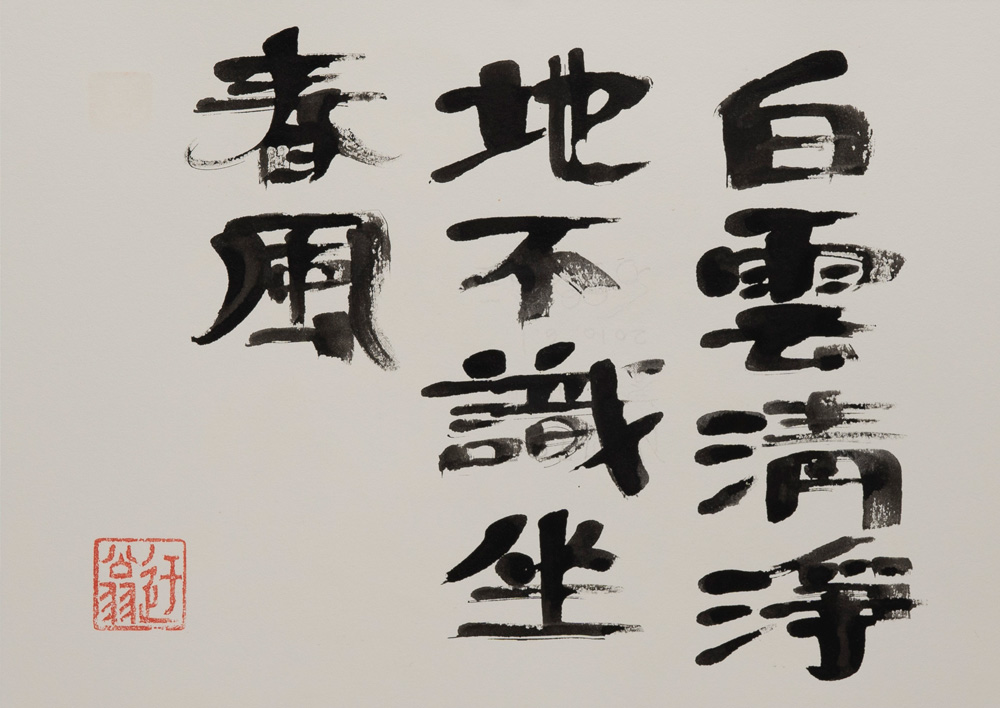 白雲清淨
地不識坐
春風
迂翁